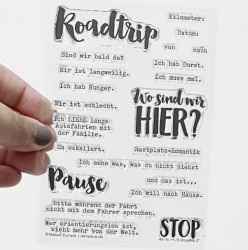 Roadtrip
Kilometer:
Datum:
von nach
Sind wir bald da?
Ich hab Durst.
Mir ist langweilig.
Ich muss mal.
Ich hab Hunger.
Wo sind wir
HIER?
Mir ist schlecht.
Ich LIEBE lange
Autofahrten mit
der Familie.
Es eskaliert.
Rastplatz-Romantik
Ich sehe was, was du nicht siehst
und das ist...
Pause
Ich will nach Hause.
bitte während der Fahrt
nicht mit dem Fahrer sprechen.
STOP
Wer orientierungslos ist,
sieht mehr von der Welt.